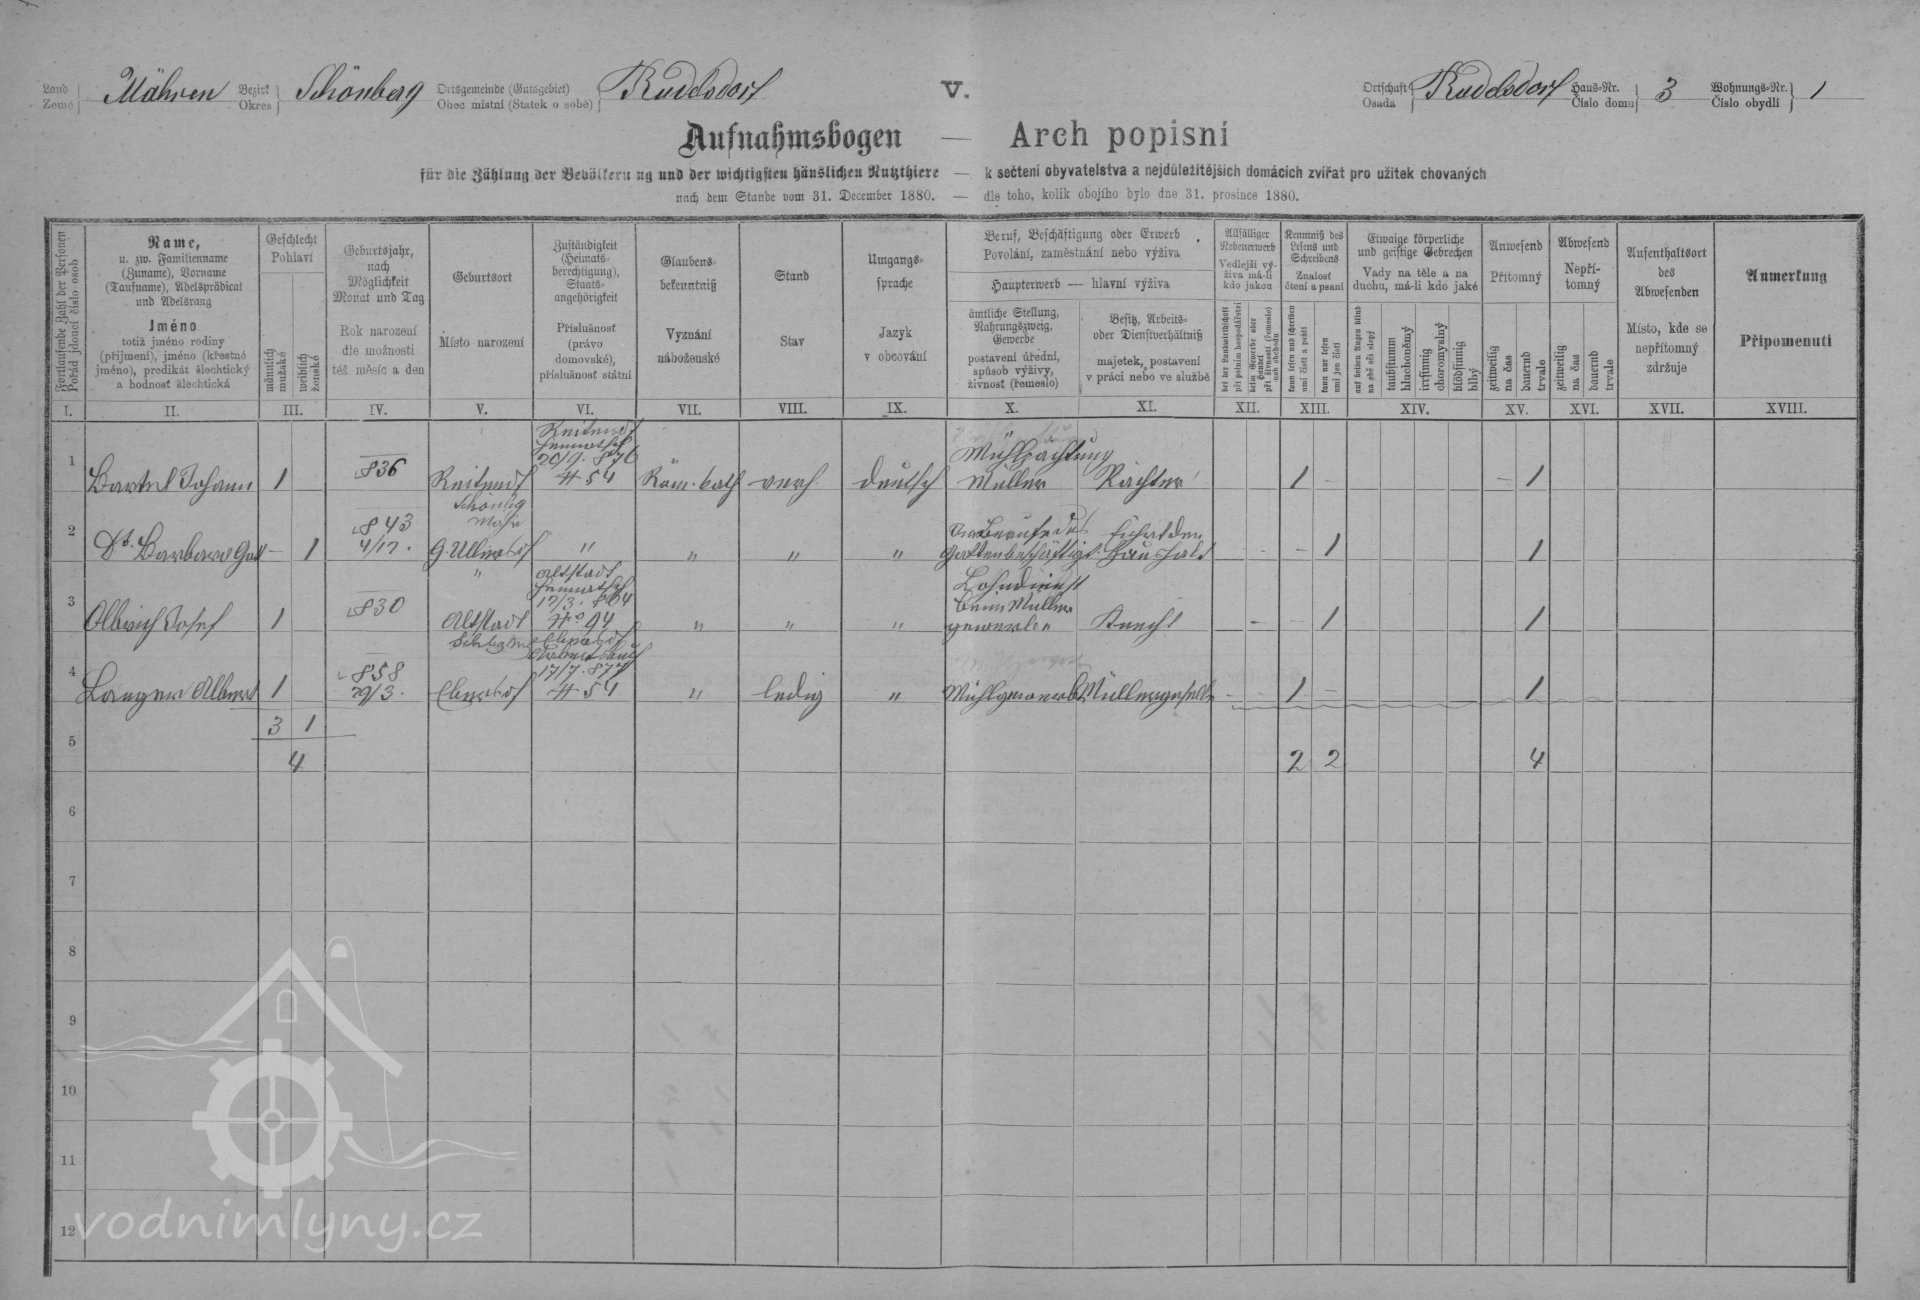 Land
Země
Mähren
Bezirk
Okres
Schönberg
Ortsgemeinde (Gutsgebiet)
Obec místní (Statek o sobě)
Rudelsdorf
V.
Ortschaft
Osada
Rudelsdorf
Haus-Nr.
Číslo domu
3
Wohnungs-Nr.
Číslo obydlí
1
Aufnahmsbogen — Arch popisní
für die Zählung der Bevölkerung und der wichtigsten häuslichen Nutzthiere — k sečtení obyvatelstva a nejdůležitějších domácích zvířat pro užitek chovaných
nach dem Stande vom 31. December 1880. — dle toho, kolik obojího bylo dne 31. prosince 1880.
Fortlaufende Zahl der Personen
Pořád jdoucí číslo osob
Name,
u. zw. Familienname
(Zuname), Vorname
(Taufname), Adelsprädicat
und Adelsrang
Jméno
totiž jméno rodiny
(příjmení), jméno (křestné
jméno), predikát šlechtický
a hodnost šlechtická
Geschlecht
Pohlaví
männlich
mužské
weiblich
ženské
Geburtsjahr,
nach
Möglichkeit
Monat und Tag
Rok narození
dle možnosti
též měsíc a den
Geburtsort
Místo narození
Zuständigkeit
(Heimats-
berechtigung),
Staats-
angehörigkeit
Příslušnost
(právo
domovské),
příslušnost státní
Glaubens-
bekenntniß
Vyznání
náboženské
Stand
Stav
Umgangs-
sprache
Jazyk
v obcování
Beruf, Beschäftigung oder Erwerb
Povolání, zaměstnání nebo výživa
Haupterwerb — hlavní výživa
ämtliche Stellung,
Nahrungszweig,
Gewerbe
postavení úřední,
spůsob výživy,
živnost (řemeslo)
Besitz, Arbeits-
oder Dienstverhältniß
majetek, postavení
v práci nebo ve službě
Allfälliger
Nebenerwerb
Vedlejší vý-
živa má-li
kdo jakou
bei der Landwirthschaft
při polním hospodářství
beim Gewerbe oder
Handel
při živnosti (řemesle)
neb obchodu
Kenntniß des
Lesens und
Schreibens
Znalost
čtení a psaní
kann lesen und schreiben
umí čísti a psáti
kann nur lesen
umí jen čísti
Etwaige körperliche
und geistige Gebrechen
Vady na těle a na
duchu, má-li kdo jaké
auf beiden Augen blind
na obě oči slepý
taubstumm
hluchoněmý
irrsinnig
choromyslný
blödsinnig
blbý
Anwesend
Přítomný
zeitweilig
na čas
dauernd
trvale
Abwesend
Nepří-
tomný
zeitweilig
na čas
dauernd
trvale
Aufenthaltsort
des
Abwesenden
Místo, kde se
nepřítomný
zdržuje
Anmerkung
Připomenutí
I. II. III. IV. V. VI. VII. VIII. IX. X. XI. XII. XIII. XIV. XV. XVI. XVII. XVIII.
1
Bartel Johann 1 836 Reitendf
20/9. 876
# 54
Röm. kath verh. deutsch
Mühlpachtung
Müller Pächter 1 – – 1
2
Barbara – 1
843
4/12.
Schönbg
Mähr
G. Ullersdf
" " " "
Im Berufe des
Gatten beschäftigt
Führt den
Haushalt
– – – 1 1
3
Olbrich Josef 1 830
"
Altstadt
Altstadt
17/3. 864
No 94
" " "
Lohndienst
beim Müller
gewerbe
Knecht – – 1 1
4
Langer Albert 1
858
29/3.
Ebersdf
17/7. 877
# 54
" ledig "
Mühlgewerbe Müllergeselle – – 1 – 1
3 1
5
4 2 2 4
6
7
8
9
10
11
12
vodnimlyny.cz